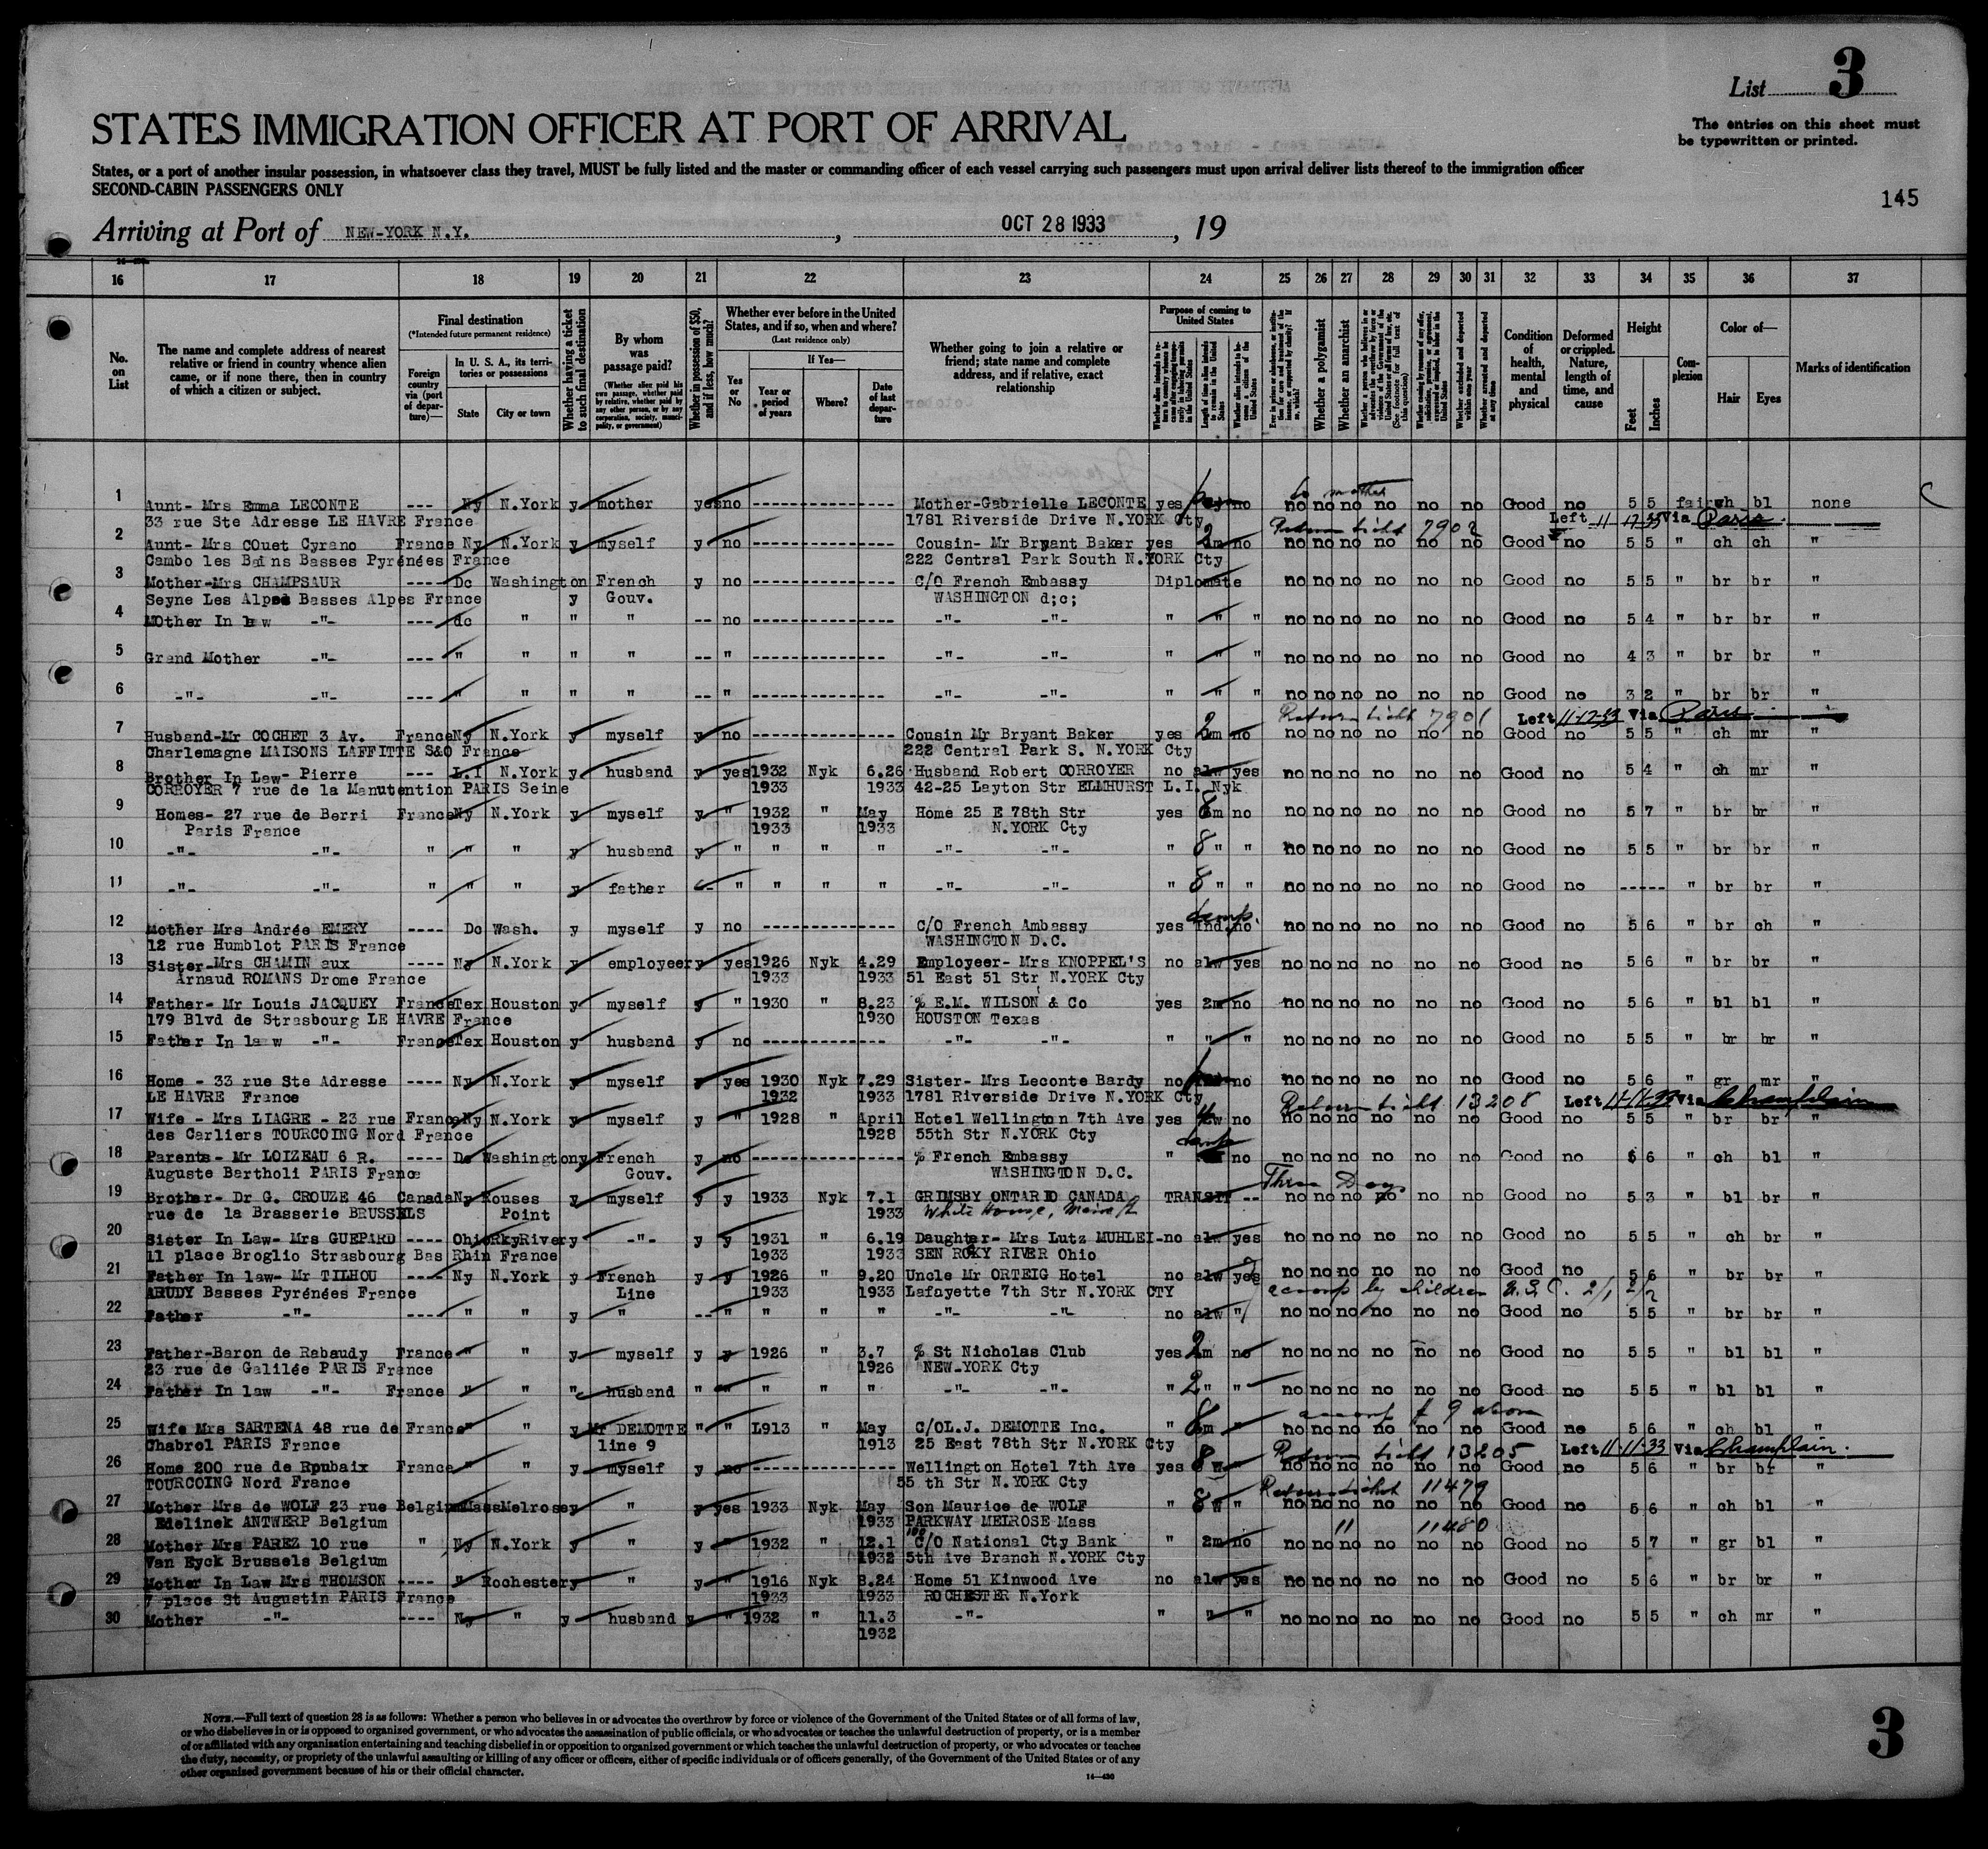 List 3
The entries on this sheet must
be typewritten or printed.
STATES IMMIGRATION OFFICER AT PORT OF ARRIVAL
States, or a port of another insular possession, in whatsoever class they travel, MUST be fully listed and the master or commanding officer of each vessel carrying such passengers must upon arrival deliver lists thereof to the immigration officer
SECOND-CABIN PASSENGERS ONLY
145
Arriving at Port of NEW-YORK N.Y. , OCT 28 1933 , 19
16 17 18 19 20 21 22 23 24 25 26 27 28 29 30 31 32 33 34 35 36 37
No. on List
The name and complete address of nearest relative or friend in country whence alien came, or if none there, then in country of which a citizen or subject.
Final destination
(*Intended future permanent residence)
Foreign country via (port of departure)—
In U. S. A., its territories or possessions
State City or town
Whether having a ticket to such final destination
By whom was passage paid?
(Whether alien paid his own passage, whether paid by relative, whether paid by any other person, or by any corporation, society, municipality, or government)
Whether in possession of $50, and if less, how much?
Whether ever before in the United States, and if so, when and where?
(Last residence only)
Yes or No
If Yes—
Year or period of years
Where?
Date of last departure
Whether going to join a relative or friend; state name and complete address, and if relative, exact relationship
Purpose of coming to United States
Length of time alien intends to remain in the United States
Whether alien intends to become a citizen of the United States
Whether a polygamist
Whether an anarchist
Whether arrested and deported at any time
Condition of health, mental and physical
Deformed or crippled. Nature, length of time, and cause
Height
Feet Inches
Complexion
Color of—
Hair Eyes
Marks of identification
1 Aunt- Mrs Emma LECONTE ---- Ny N.York y mother yes no -------------- Mother-Gabrielle LECONTE yes no no no no no no no Good no 5 5 fair ch bl none
33 rue Ste Adresse LE HAVRE France 1781 Riverside Drive N.YORK Cty
Return tickt 7902 Left 11-17-33 Via Paris
2 Aunt- Mrs COuet Cyrano France Ny N.York y myself y no -------------- Cousin- Mr Bryant Baker yes 2m no no no no no no no Good no 5 5 " ch ch "
Cambo les Bains Basses Pyrénées France 222 Central Park South N.YORK Cty
3 Mother-Mrs CHAMPSAUR ---- Dc Washington French y no -------------- C/O French Embassy Diplomate no no no no no no Good no 5 5 " br br "
Seyne Les Alpes Basses Alpes France y Gouv. WASHINGTON d;c;
4 MOther In law -"- --- dc " " " -- no -------------- -"- -"- " " " no no no no no no Good no 5 4 " br br "
5 Grand Mother -"- --- " " " " -- " -------------- -"- -"- " " " no no no no no no Good no 4 3 " br br "
6 -"- -"- --- " " " " -- " -------------- -"- -"- " " " no no no no no no Good no 3 2 " br br "
Return tickt 7901 Left 11-17-33 Via Paris
7 Husband-Mr COCHET 3 Av. France Ny N.York y myself y no -------------- Cousin Mr Bryant Baker yes 2m no no no no no no no Good no 5 5 " ch mr "
Charlemagne MAISONS LAFFITTE S&O France 222 Central Park S. N.YORK Cty
8 Brother In Law- Pierre --- L.I N.York y husband y yes 1932 Nyk 6.26 Husband Robert CORROYER no alw yes no no no no no no Good no 5 4 " ch mr "
CORROYER 7 rue de la Manutention PARIS Seine 1933 1933 42-25 Layton Str ELMHURST L.I. Nyk
9 Homes- 27 rue de Berri France Ny N.York y myself y " 1932 " May Home 25 E 78th Str yes 8m no no no no no no no Good no 5 7 " br br "
Paris France 1933 1933 N.YORK Cty
10 -"- -"- " " " y husband y " " " " -"- -"- " 8 " " no no no no no no Good no 5 5 " br br "
11 -"- -"- " " " y father -- " " " " -"- -"- " 8 " " no no no no no no Good no ----- " br br "
temp.
12 Mother Mrs Andrée EMERY ---- Dc Wash. y myself y no -------------- C/O French Ambassy yes Ind. no no no no no no no Good no 5 6 " br ch "
12 rue Humblot PARIS France WASHINGTON D.C.
13 Sister-Mrs CHAMIN aux ---- Ny N.York y employeer y yes 1926 Nyk 4.29 Employeer- Mrs KNOPPEL'S no alw yes no no no no no no Good no 5 6 " br br "
Arnaud ROMANS Drome France 1933 1933 51 East 51 Str N.YORK Cty
14 Father- Mr Louis JACQUEY France Tex Houston y myself y " 1930 " 8.23 % E.M. WILSON & Co yes 2m no no no no no no no Good no 5 6 " bl bl "
179 Blvd de Strasbourg LE HAVRE France 1930 HOUSTON Texas
15 Father In law -"- France Tex Houston y husband y no ------------- -"- -"- " " " no no no no no no Good no 5 5 " br br "
16 Home - 33 rue Ste Adresse ---- Ny N.York y myself y yes 1930 Nyk 7.29 Sister- Mrs Leconte Bardy no no no no no no no no Good no 5 6 " gr mr "
LE HAVRE France 1932 1933 1781 Riverside Drive N.YORK Cty
Return tickt 13208 Left 11-11-33 Via Champlain
17 Wife - Mrs LIAGRE - 23 rue France Ny N.York y myself y " 1928 " April Hotel Wellington 7th Ave yes 4w no no no no no no no Good no 5 5 " br br "
des Carliers TOURCOING Nord France 1928 55th Str N.YORK Cty
18 Parents- Mr LOIZEAU 6 R. ---- Dc Washington y French y no -------------- % French Embassy " no no no no no no no Good no 6 6 " ch bl "
Auguste Bartholi PARIS France Gouv. WASHINGTON D.C.
Three Days
19 Brother- Dr G. CROUZE 46 Canada Ny Rouses y myself y y 1933 Nyk 7.1 GRIMSBY ONTARIO CANADA TRANSIT -- no no no no no no Good no 5 3 " bl br "
rue de la Brasserie BRUSSELS Point 1933 White House, Main St
20 Sister In Law- Mrs GUEPARD ---- Ohio RkyRiver y -"- y y 1931 " 6.19 Daughter- Mrs Lutz MUHLEI- no alw yes no no no no no no Good no 5 5 " ch br "
11 place Broglio Strasbourg Bas Rhin France 1933 1933 SEN ROKY RIVER Ohio
21 Father In law- Mr TILHOU ---- Ny N.York y French y y 1926 " 9.20 Uncle Mr ORTEIG Hotel no alw yes no no no no no no Good no 5 6 " br br "
ARUDY Basses Pyrénées France Line 1933 1933 Lafayette 7th Str N.YORK CTY accomp by children U.S.C.
22 Father -"- ---- " " y " -- " " " " -"- -"- no alw " no no no no no no Good no 5 5 " br br "
23 Father-Baron de Rabaudy France " " y myself y y 1926 " 3.7 % St Nicholas Club yes 2m no no no no no no no Good no 5 5 " bl bl "
23 rue de Galilée PARIS France 1926 NEW-YORK Cty
24 Father In law -"- France " " " husband " " " " " -"- -"- " 2 " " no no no no no no Good no 5 5 " bl bl "
accomp # 9 above
25 Wife Mrs SARTENA 48 rue de France " " y Mr DEMOTTE " " 1913 " May C/OL.J. DEMOTTE Inc. " 8m " no no no no no no Good no 5 6 " ch bl "
Chabrol PARIS France line 9 1913 25 East 78th Str N.YORK Cty
Return tickt 13205 Left 11-11-33 Via Champlain.
26 Home 200 rue de Roubaix France " " y myself y no -------------- Wellington Hotel 7th Ave yes 8 w " no no no no no no Good no 5 6 " br br "
TOURCOING Nord France 55 th Str N.YORK Cty
Return ticket 11479
27 Mother Mrs de WOLF 23 rue Belgium Mass Melrose y " y yes 1933 Nyk May Son Maurice de WOLF " 8 w " no no no no no no Good no 5 6 " ch bl "
Edelinek ANTWERP Belgium 1933 PARKWAY MELROSE Mass
" 11480
28 Mother Mrs PAREZ 10 rue " Ny N.York y " y " 1932 " 12.1 C/O National Cty Bank " 2m no no no no no no no Good no 5 7 " gr bl "
Van Eyck Brussels Belgium 1932 5th Ave Branch N.YORK Cty
29 Mother In Law Mrs THOMSON ---- " Rochester y " y " 1916 Nyk 8.24 Home 51 Kinwood Ave no alw yes no no no no no no Good no 5 6 " br br "
7 place St Augustin PARIS France 1933 1933 ROCHESTER N.York
30 Mother -"- ---- Ny " y husband y " 1932 " 11.3 -"- " " " no no no no no no Good no 5 5 " ch mr "
1932
NOTE.—Full text of question 28 is as follows: Whether a person who believes in or advocates the overthrow by force or violence of the Government of the United States or of all forms of law,
or who disbelieves in or is opposed to organized government, or who advocates the assassination of public officials, or who advocates or teaches the unlawful destruction of property, or is a member
of or affiliated with any organization entertaining and teaching disbelief in or opposition to organized government or which teaches the unlawful destruction of property, or who advocates or teaches
the duty, necessity, or propriety of the unlawful assaulting or killing of any officer or officers, either of specific individuals or of officers generally, of the Government of the United States or of any
other organized government because of his or their official character.
14—430
3